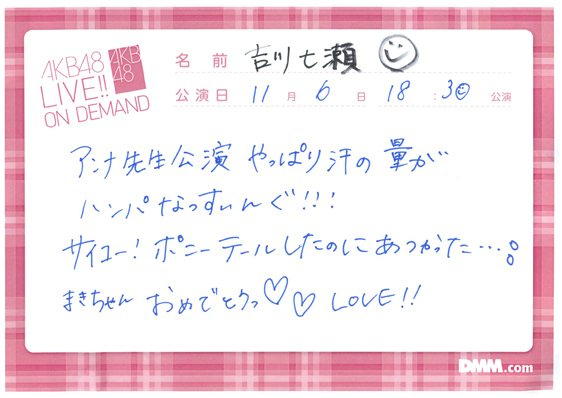 AKB48
LIVE!!
ON DEMAND
AKB
48
名前 吉川七瀬
公演日 11月6日 18:30 公演
アンナ先生公演 やっぱり汗の量が
ハンパなっすぃんぐ!!!
サイコー! ポニーテールしたのにあつかった…。
まきちゃん おめでとうっ♡♡ LOVE!!
DMM.com